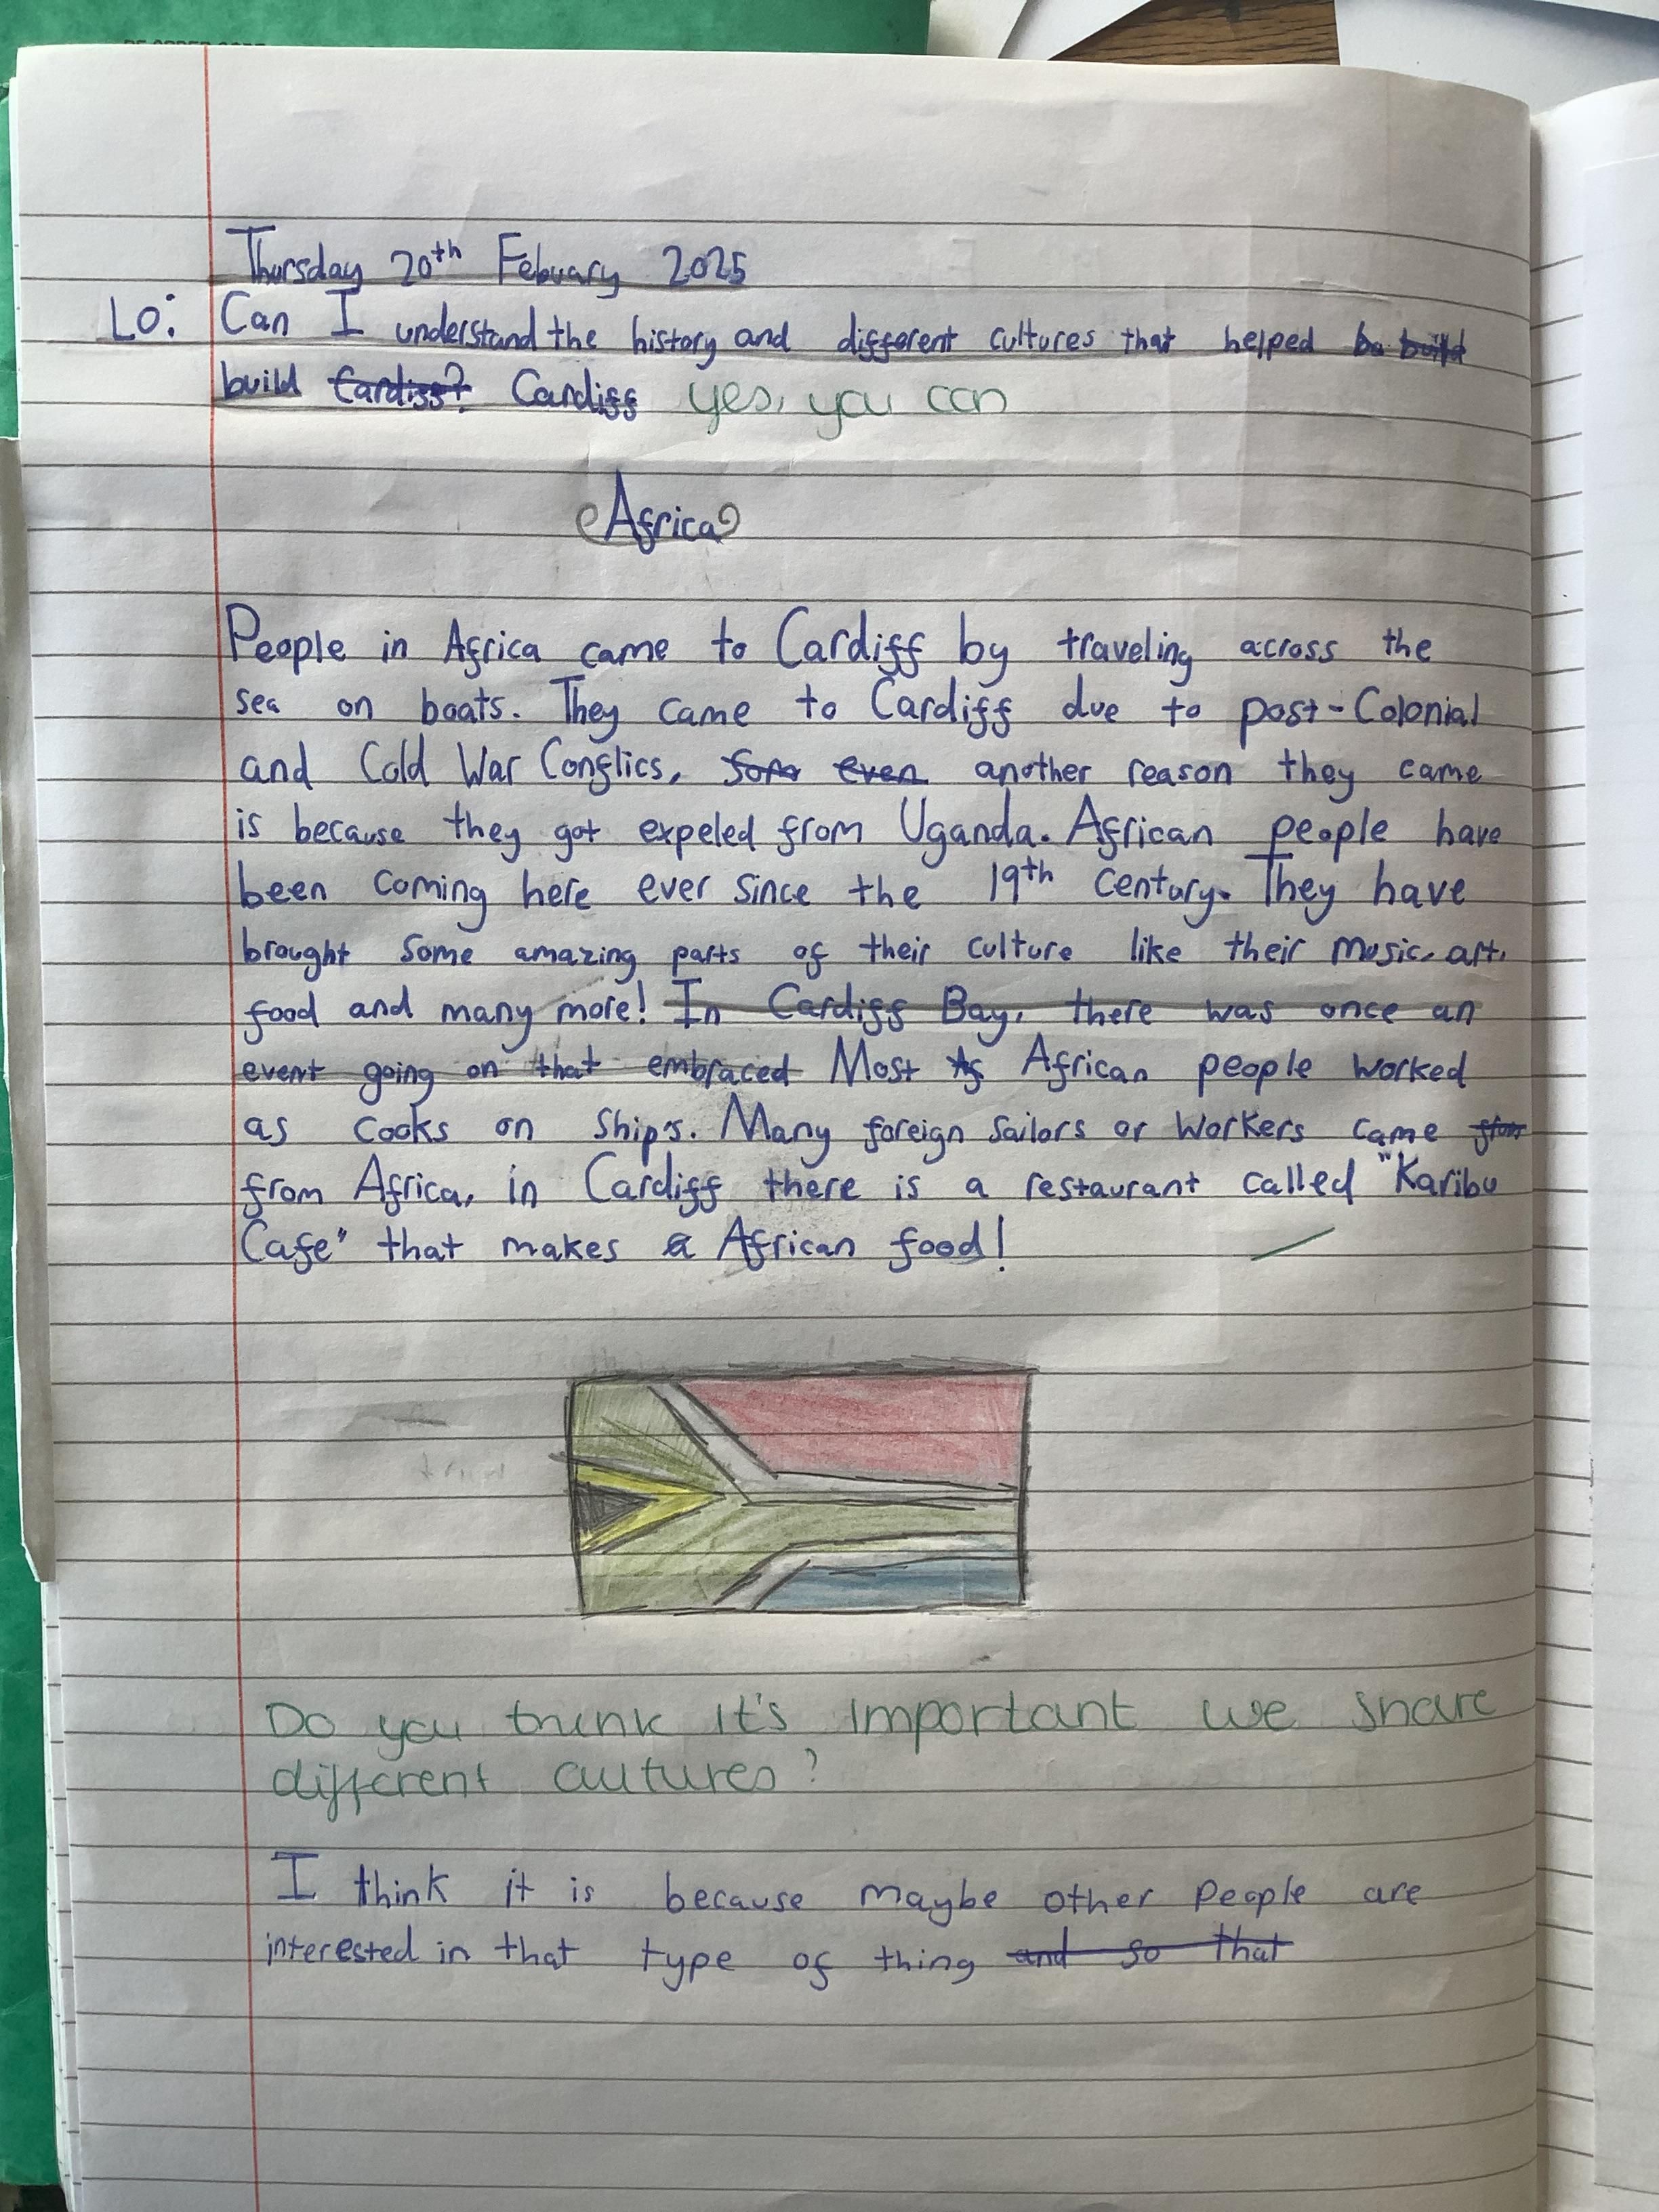 Thursday 20th Febuary 2025
LO: Can I understand the history and different cultures that helped ba build
build Cardiff? Cardiff yes, you can
Africa
People in Africa came to Cardiff by traveling across the
sea on boats. They came to Cardiff due to post-Colonial
and Cold War Conflics, Som even another reason they came
is because they got expeled from Uganda. African people have
been coming here ever since the 19th century. They have
brought some amazing parts of their culture like their music, art,
food and many more! In Cardiff Bay, there was once an
event going on that embraced Most Af African people worked
as cooks on ship's. Many foreign sailors or workers came
from Africa, in Cardiff there is a restaurant called "Karibu
Cafe" that makes a African food!
Do you think it's important we share
different cultures?
I think it is because maybe other people are
interested in that type of thing and so that